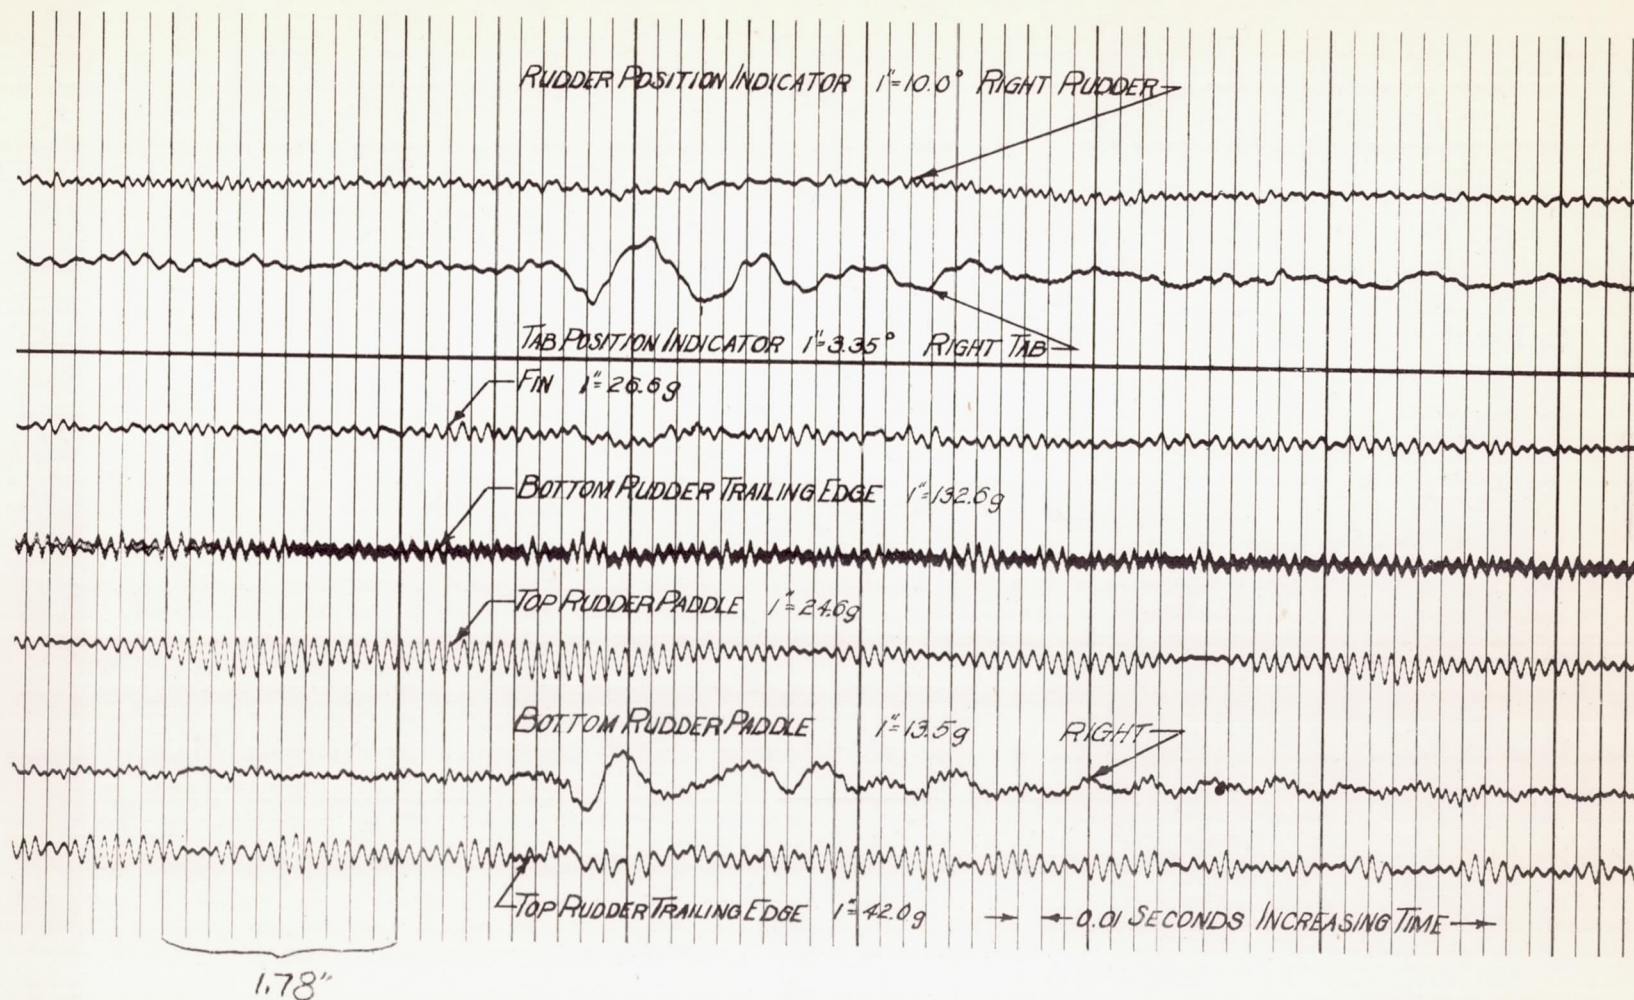 RUDDER POSITION INDICATOR 1"=10.0° RIGHT RUDDER
TAB POSITION INDICATOR 1"=3.35° RIGHT TAB
FIN 1"=26.6g
BOTTOM RUDDER TRAILING EDGE 1"=132.6g
TOP RUDDER PADDLE 1"=24.6g
BOTTOM RUDDER PADDLE 1"=13.5g RIGHT
TOP RUDDER TRAILING EDGE 1"=42.0g 0.01 SECONDS INCREASING TIME
1.78"